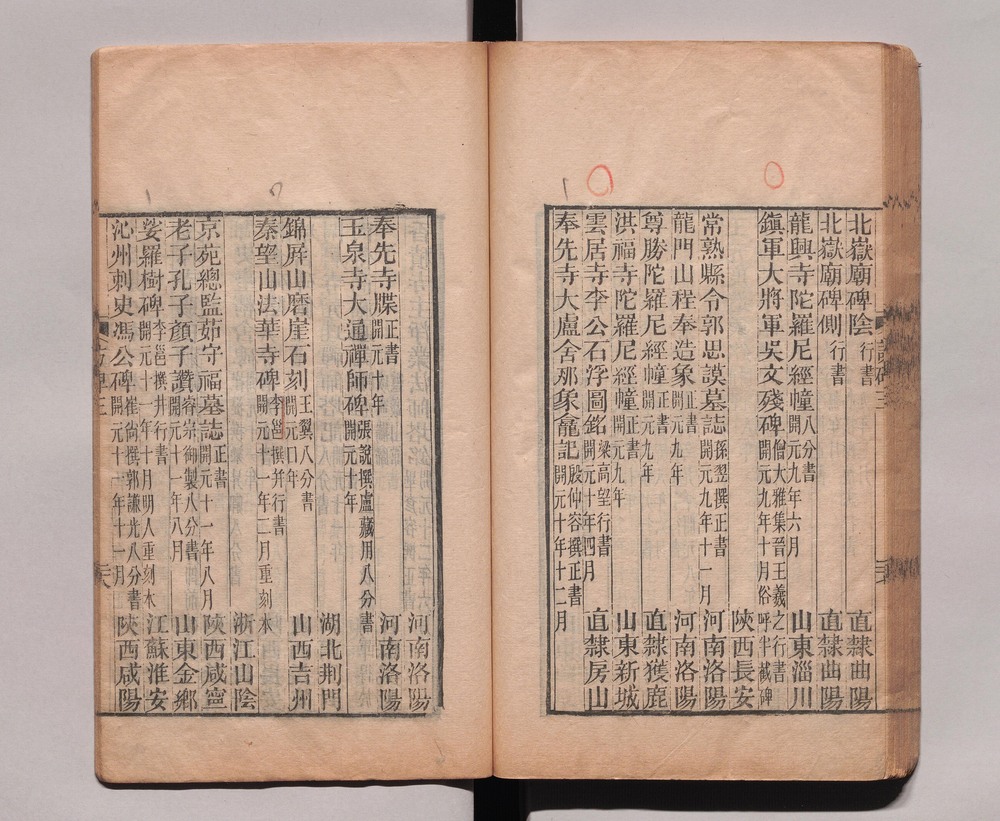 北嶽廟碑陰 行書 直隸曲陽
北嶽廟碑側 行書 直隸曲陽
龍興寺陀羅尼經幢 八分書 開元九年六月 山東淄川
鎮軍大將軍吳文殘碑 僧大雅集晉王羲之行書 開元九年十月俗呼半截碑
陝西長安
常熟縣令郭思謨墓誌 孫翌撰正書 開元九年十一月 河南洛陽
龍門山程奉造象 正書 開元九年 河南洛陽
尊勝陀羅尼經幢 正書 開元九年 直隸獲鹿
洪福寺陀羅尼經幢 正書 開元九年 山東新城
雲居寺李公石浮圖銘 梁高望行書 開元十年四月 直隸房山
奉先寺大盧舍那象龕記 殷仲容撰正書 開元十年十二月
河南洛陽
奉先寺牒 正書 開元十年 河南洛陽
玉泉寺大通禪師碑 張說撰盧藏用八分書 開元十年
湖北荆門
錦屏山磨崖石刻 王翼八分書 開元口年 山西吉州
秦望山法華寺碑 李邕撰并行書 開元十一年二月重刻本
浙江山陰
京苑總監茹守福墓誌 正書 開元十一年八月 陝西咸寧
老子孔子顏子讚 睿宗御製八分書 開元十一年八月 山東金鄉
娑羅樹碑 李邕撰并行書 開元十一年十月明人重刻木 江蘇淮安
沁州刺史馮公碑 崔尚撰郭謙光八分書 開元十一年十一月 陝西咸陽